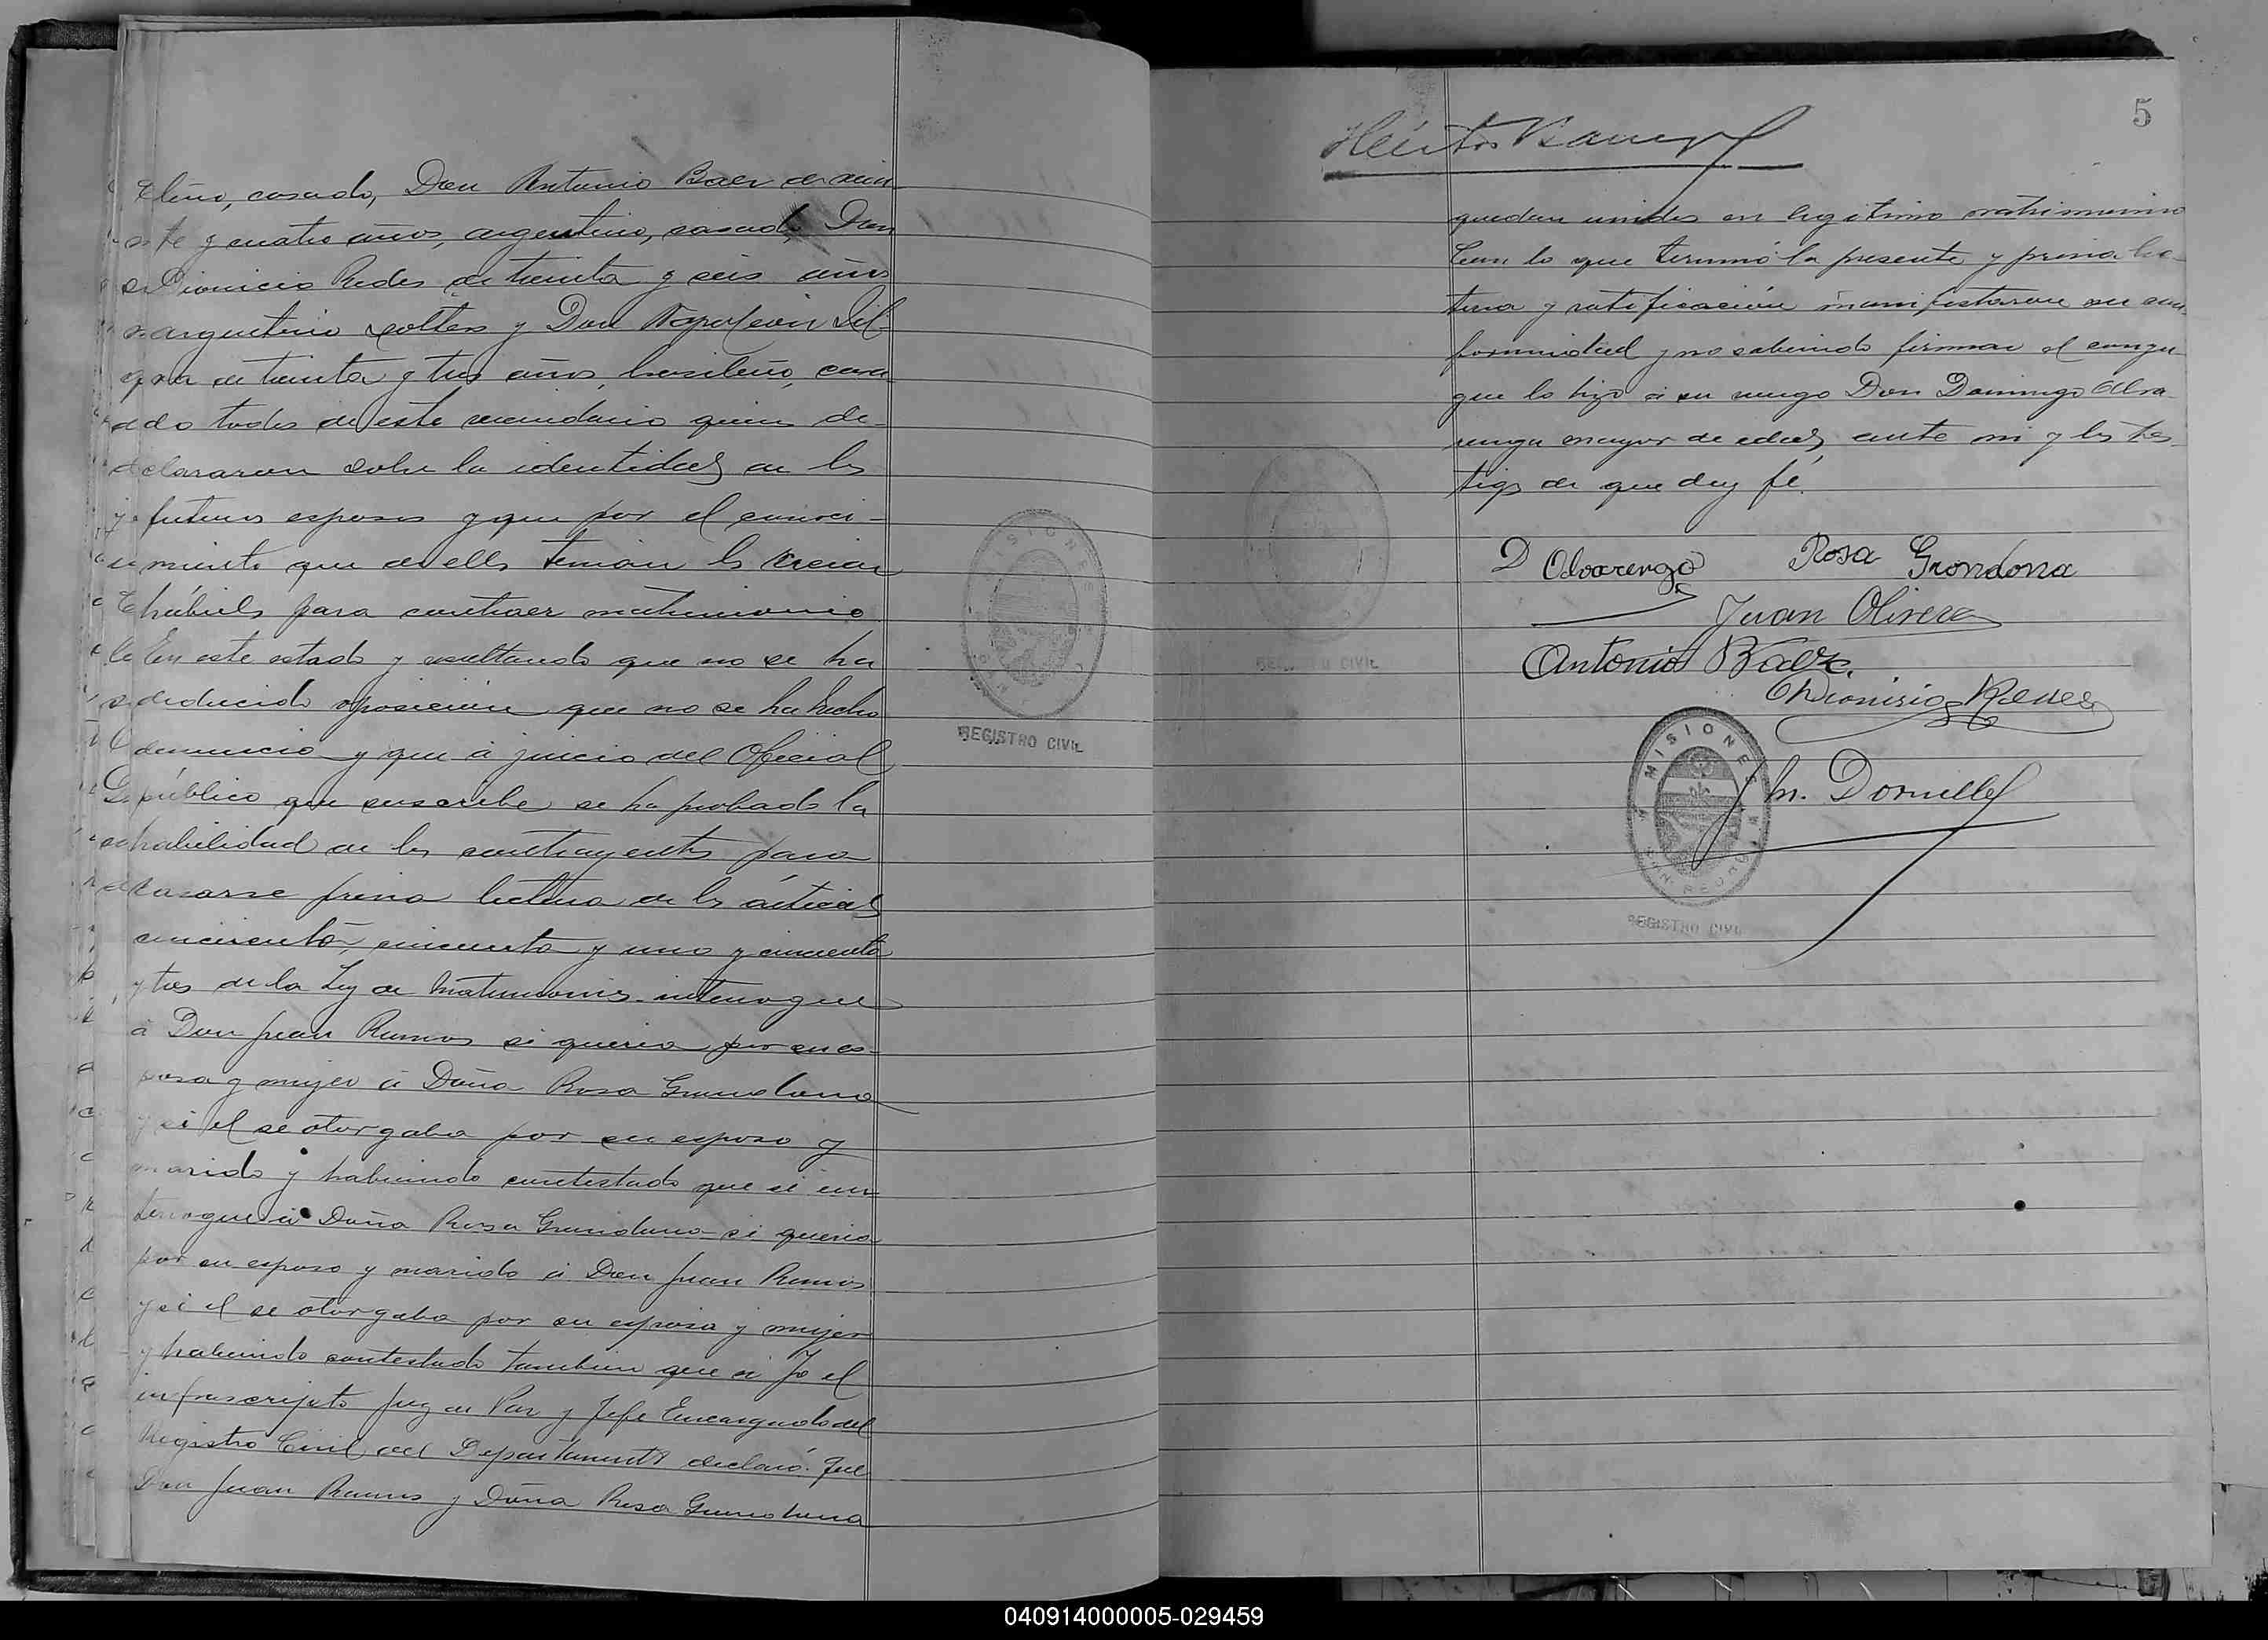 casado, Don Antonio Baez de vein
te y cuatro años, argentino, casado, Don
Dionicio de treinta y seis años
argentino soltero y Don Napoleón
de treinta y tres años, brasileño, casa
do todos de este vecindario quienes de-
clararon sobre la identidad de los
futuros esposos y que por el conoci-
miento que de ellos tenian los creian
hábiles para contraer matrimonio
En este estado y resultando que no se ha
deducido oposicion que no se ha hecho
denuncia y que á juicio del Oficial
público que suscribe se ha probado la
habilidad de los contrayentes para
casarse previa lectura de los articulos
cincuenta, cincuenta y uno y cincuenta
y tres de la Ley de Matrimonio interrogue
á Don Juan Ramos si queria por su es-
posa y mujer á Doña Rosa Grondona
y si el se otorgaba por su esposo y
marido y habiendo contestado que si in
terrogue á Doña Rosa Grondona si queria
por su esposo y marido á Don Juan Ramos
y si el se otorgaba por su esposa y mujer
y habiendo contestado tambien que si Yo el
infrascripto Juez de Paz y Jefe Encargado del
Registro Civil del Departamento declaró: Que
Don Juan Ramos y Doña Rosa Grondona
MISIONES
REGISTRO CIVIL
5
quedan unidos en legitimo matrimonio
Con lo que terminó la presente y previa lec
tura y ratificación manifestaron su con
formidad y no sabiendo firmar el conyu
que lo hizo á su ruego Don Domingo Alva
renga mayor de edad, ante mi y los tes
tigos de que doy fé.
D Alvarenga Rosa Grondona
Juan Olivera
Antonio Baez
Dionisio
MISIONES
SAN PEDRO
REGISTRO CIVIL
040914000005-029459